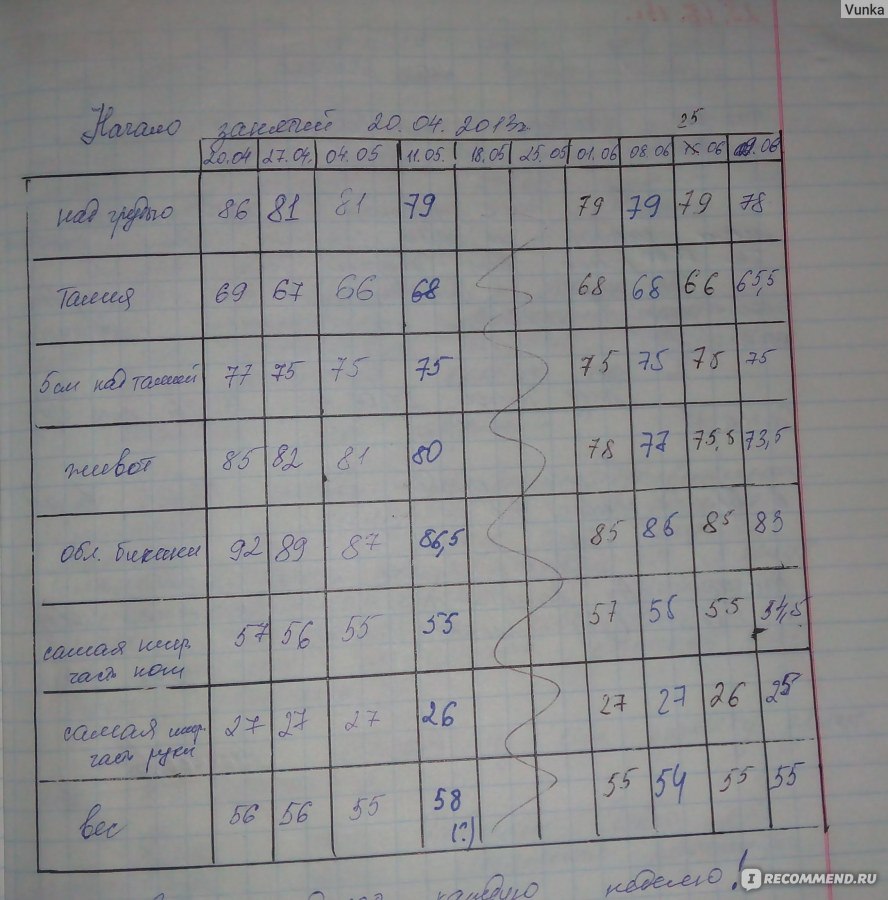 Vunka
Начало занятий 20.04.2013г.
25
20.04 27.04. 04.05 11.05. 18.05 25.05 01.06 08.06 06 06
над грудью 86 81 81 79 79 79 79 78
Талия 69 67 66 68 68 68 66 65,5
5см над талией 77 75 75 75 75 75 75 75
живот 85 82 81 80 78 77 75,5 73,5
обл. бикини 92 89 87 86,5 85 86 85 83
самая шир. 57 56 55 55 57 55 54,5
часть ноги
самая шир. 27 27 27 26 27 27 26 25
часть руки
вес 56 56 55 58 55 54 55 55
(?)
каждую неделю!
IRECOMMEND.RU